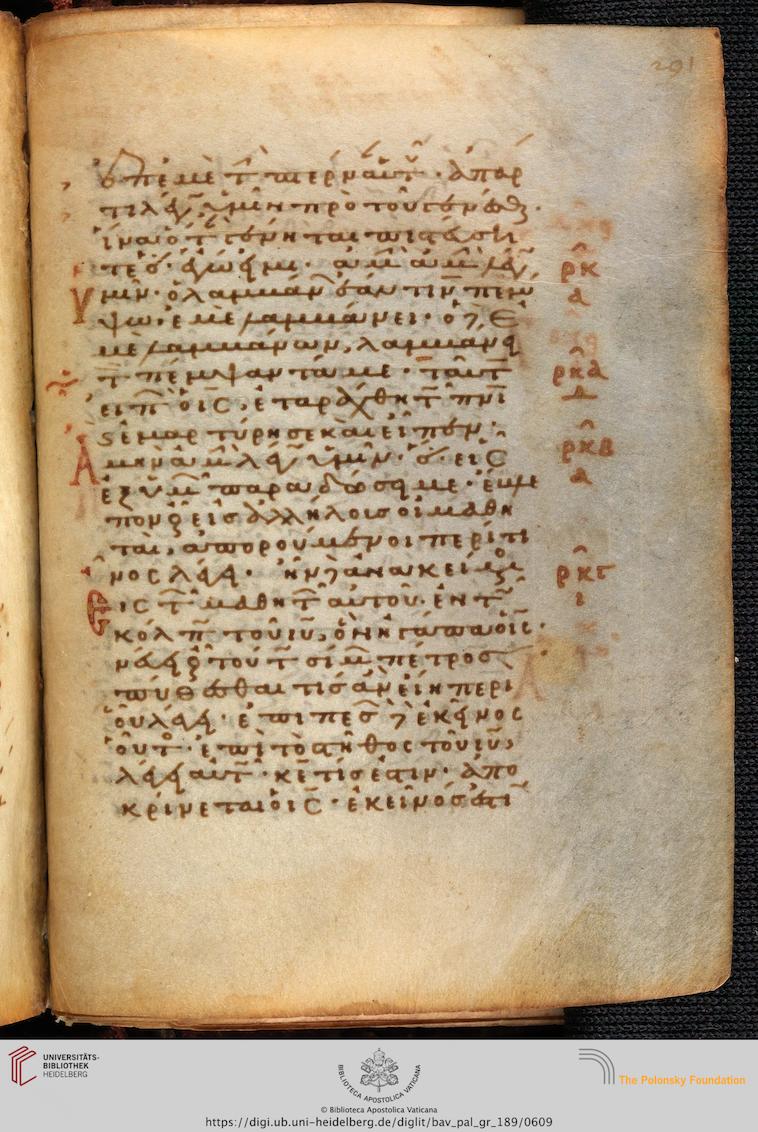 291
ἐπ ἐμὲ τ πτερναυτ · ἀπαρ
τι λέγω ὑμῖν πρὸ τοῦ γενέσθ ·
ἵνα ὅτ γένηται πιστεύση
τε ὅ · ἐγώ εἰμι · ἀμ ἀμ λέγω
ὑμῖν · ὁ λαμβάν ἐάν τιν πεμ
ψω · ἐμὲ λαμβάνει · ὁ δὲ
ἐμὲ λαμβάνων, λαμβάνει
τ πέμψαντά με · ταυτ
εἰπ ὁ ις, ἐταράχθη τ πνι
ϛ ἐμαρτύρησε καὶ εἶπεν ·
Ἀμὴν ἀμ λέγω ὑμῖν · ὅ · εἷς
ἐξ ὑμ παραδώσει με · ἔβλε
πον οὖν εἰς ἀλλήλους οἱ μαθη
ταὶ, ἀπορούμενοι περὶ τί
νος λέγει · ἦν δὲ ἀνακείμενο
εἷς τ μαθητ αὐτοῦ ἐν τ
κόλπ τοῦ ιυ, ὃν ἠγάπα ὁ ις ·
νεύει οὖν τούτ σίμ πέτρος
πυθέσθαι τίς ἂν εἴη περὶ
οὗ λέγει · ἐπιπεσ δὲ ἐκεῖνος
οὕτ · ἐπὶ τὸ στῆθος τοῦ ιυ,
λέγει αὐτ · κε τίς ἐστιν · ἀπο
κρίνεται ὁ ις · ἐκεῖνός ἐστι
ρκ
α
ρκα
α
ρκβ
α
ρκγ
ι
UNIVERSITÄTS-
BIBLIOTHEK
HEIDELBERG
BIBLIOTECA APOSTOLICA VATICANA
The Polonsky Foundation
© Biblioteca Apostolica Vaticana
https://digi.ub.uni-heidelberg.de/diglit/bav_pal_gr_189/0609